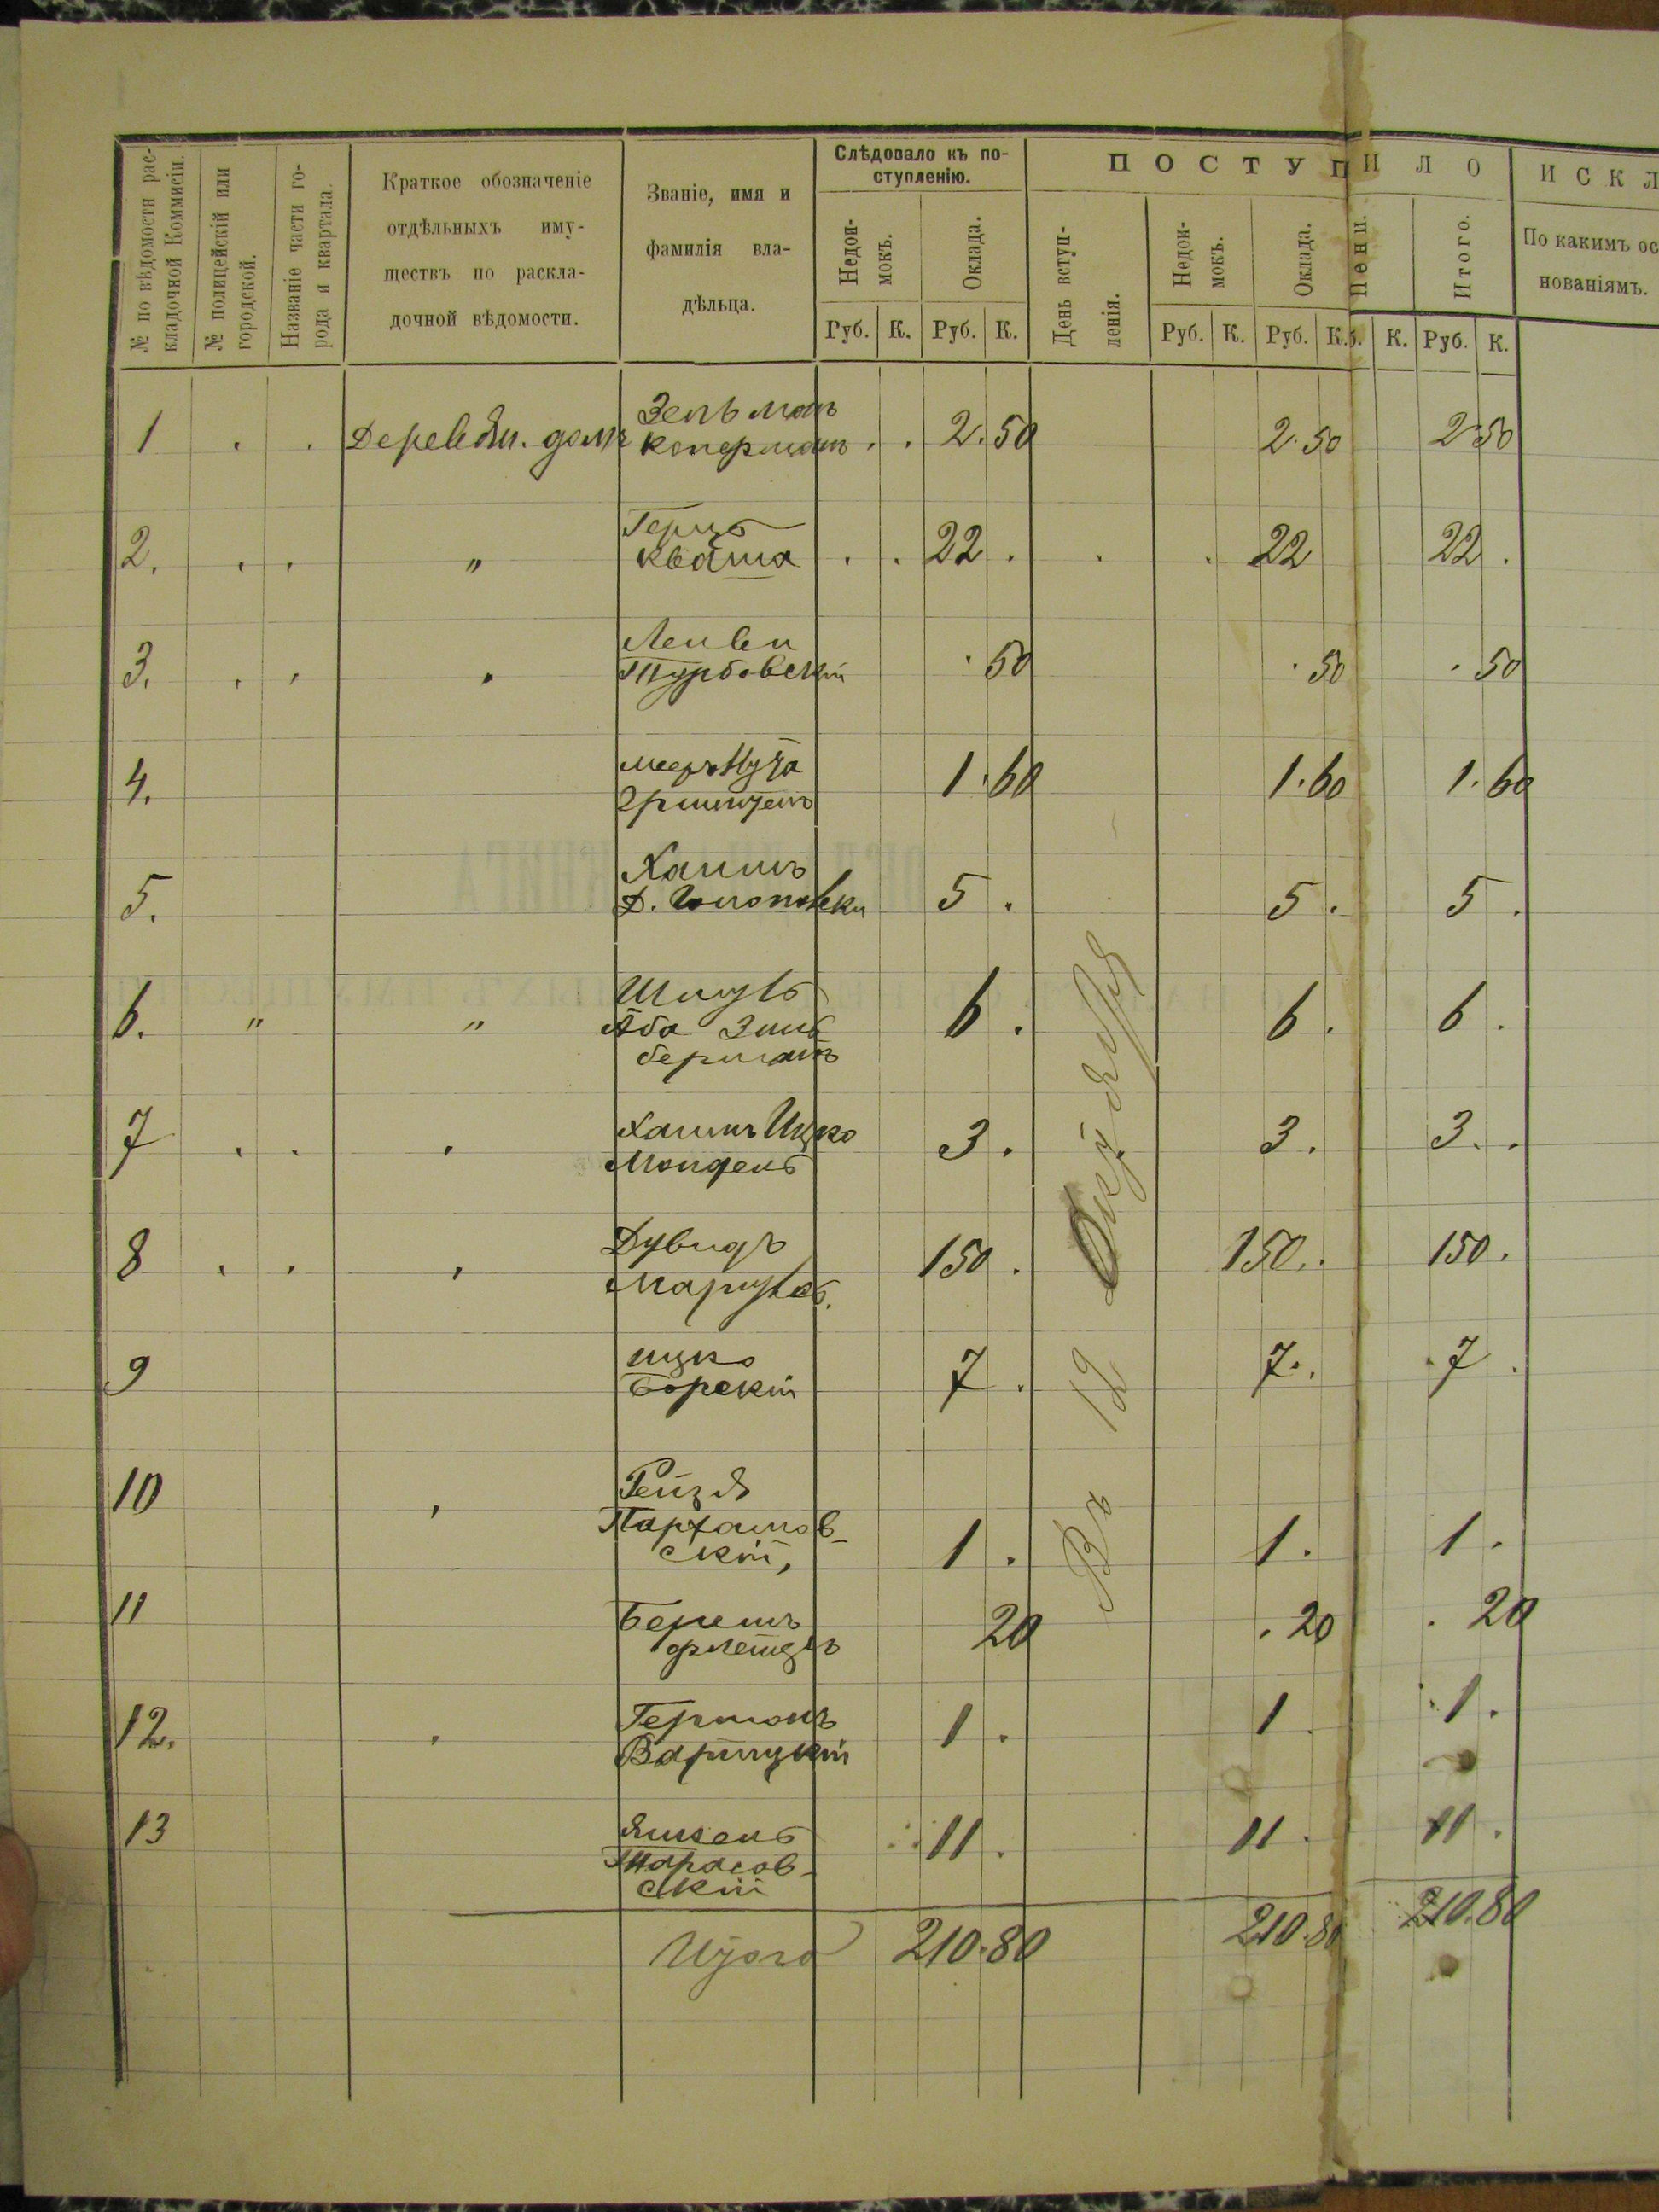 № по вѣдомости рас-
кладочной Коммисіи.
№ полицейскій или
городской.
Названіе части го-
рода и квартала.
Краткое обозначеніе
отдѣльныхъ иму-
ществъ по раскла-
дочной вѣдомости.
Званіе, имя и
фамилія вла-
дѣльца.
Слѣдовало къ по-
ступленію.
Недои-
мокъ.
Оклада.
Руб. К. Руб. К.
ПОСТУПИЛО
День вступ-
ленія.
Недои-
мокъ.
Оклада.
Пени.
Итого.
Руб. К. Руб. К. б. К. Руб. К.
ИСКЛ
По какимъ ос
нованіямъ.
1 . . Деревян. домъ Зельманъ
Коперманъ . . 2.50 2.50 2.50
2. . . " Герцъ
Кваша . . 22 . . . 22 22 .
3. . . . Лейви
Турбовскій . 50 . 50 . 50
4. Мееръ Нута
1.60 1.60 1.60
5. Хаимъ
Д. 5 . 5 . 5 .
6. " " Шмуль
Аба Зиль
берманъ 6 . 6 . 6 .
7 . . . Хаимъ Ицко
Мондель 3 . 3 . 3 . .
8 . . , Дувидъ
150 . 150 . 150 .
9 Ицко
Борскій 7 . 7 . . 7 .
10 , Рейзя
Пархамов-
скій, 1 . 1 . 1 .
11 Берешъ
20 . 20 . 20
12. . Германъ
Варницкій 1 . 1 . . 1 .
13
Тарасов-
скій 11 . 11 . 11 .
Итого 210.80 210.80 210.80
Въ 12 Октября